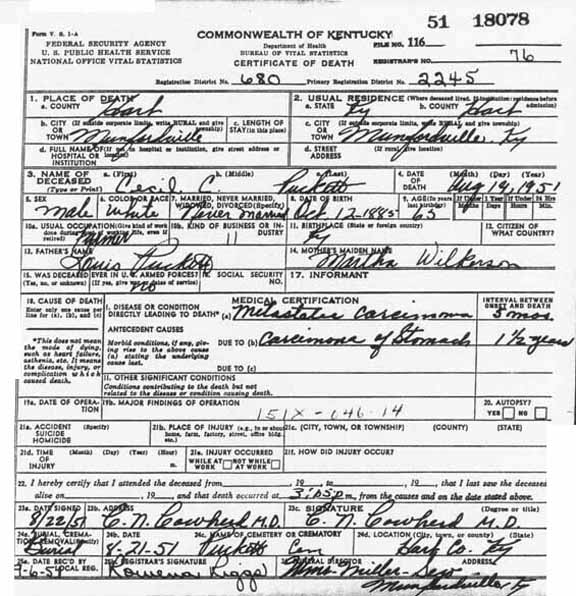 51 18078
Form V. S. 1-A
COMMONWEALTH OF KENTUCKY
FEDERAL SECURITY AGENCY
U. S. PUBLIC HEALTH SERVICE
NATIONAL OFFICE VITAL STATISTICS
Department of Health
BUREAU OF VITAL STATISTICS
CERTIFICATE OF DEATH
FILE NO. 116
REGISTRAR'S NO. 76
Registration District No. 680 Primary Registration District No. 2245
1. PLACE OF DEATH
a. COUNTY Hart
2. USUAL RESIDENCE (Where deceased lived. If institution: residence before admission)
a. STATE Ky b. COUNTY Hart
b. CITY (If outside corporate limits, write RURAL and give township)
OR TOWN Munfordville
c. LENGTH OF STAY (in this place)
c. CITY (If outside corporate limits, write RURAL and give township)
OR TOWN Munfordville, Ky
d. FULL NAME OF (If not in hospital or institution, give street address or location)
HOSPITAL OR INSTITUTION
d. STREET ADDRESS (If rural, give location)
3. NAME OF DECEASED (Type or Print)
a. (First) Cecil b. (Middle) C. c. (Last) Puckett
4. DATE OF DEATH (Month) (Day) (Year) Aug 19, 1951
5. SEX Male
6. COLOR OR RACE White
7. MARRIED, NEVER MARRIED, WIDOWED, DIVORCED (Specify) Never married
8. DATE OF BIRTH Oct 12-1885
9. AGE (In years last birthday) 65
If Under 1 Year Months Days
If Under 24 Hrs Hours Min.
10a. USUAL OCCUPATION (Give kind of work done during most of working life, even if retired) Farmer
10b. KIND OF BUSINESS OR INDUSTRY 11
11. BIRTHPLACE (State or foreign country) Ky
12. CITIZEN OF WHAT COUNTRY?
13. FATHER'S NAME Louis Puckett
14. MOTHER'S MAIDEN NAME Martha Wilkerson
15. WAS DECEASED EVER IN U. S. ARMED FORCES?
(Yes, no, or unknown) (If yes, give war or dates of service) no
16. SOCIAL SECURITY NO.
17. INFORMANT
18. CAUSE OF DEATH
Enter only one cause per line for (a), (b), and (c)
MEDICAL CERTIFICATION
INTERVAL BETWEEN ONSET AND DEATH
I. DISEASE OR CONDITION DIRECTLY LEADING TO DEATH* (a) Metastatic Carcinoma 5 mos.
*This does not mean the mode of dying, such as heart failure, asthenia, etc. It means the disease, injury, or complication which caused death.
ANTECEDENT CAUSES
Morbid conditions, if any, giving rise to the above cause (a) stating the underlying cause last.
DUE TO (b) Carcinoma of Stomach 1 1/2 years
DUE TO (c)
II. OTHER SIGNIFICANT CONDITIONS
Conditions contributing to the death but not related to the disease or condition causing death.
19a. DATE OF OPERATION
19b. MAJOR FINDINGS OF OPERATION
151X-046-14
20. AUTOPSY?
YES NO
21a. ACCIDENT SUICIDE HOMICIDE (Specify)
21b. PLACE OF INJURY (e.g., in or about home, farm, factory, street, office bldg. etc.)
21c. (CITY, TOWN, OR TOWNSHIP) (COUNTY) (STATE)
21d. TIME OF INJURY (Month) (Day) (Year) (Hour) m.
21e. INJURY OCCURRED
WHILE AT WORK NOT WHILE AT WORK
21f. HOW DID INJURY OCCUR?
22. I hereby certify that I attended the deceased from , 19 , to , 19 , that I last saw the deceased
alive on , 19 , and that death occurred at 3:05 p m., from the causes and on the date stated above.
23a. DATE SIGNED 8/22/51
23b. ADDRESS C. N. Cowherd M.D.
23c. SIGNATURE (Degree or title) C. N. Cowherd M.D.
24a. BURIAL, CREMATION, REMOVAL (Specify) Burial
24b. DATE 8-21-51
24c. NAME OF CEMETERY OR CREMATORY Puckett Cem
24d. LOCATION (City, town, or county) (State) Hart Co. Ky
25a. DATE REC'D BY LOCAL REG. 9-6-51
25b. REGISTRAR'S SIGNATURE Rowena Riggs
FUNERAL DIRECTOR ADDRESS
Munfordville Ky